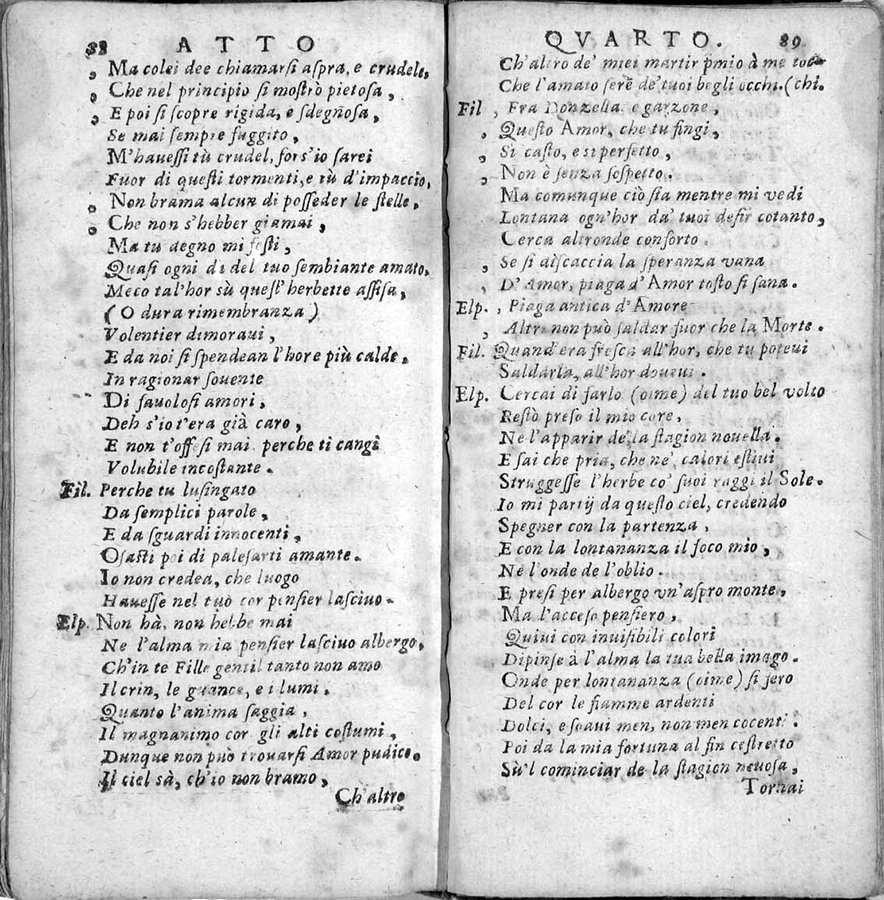 88 ATTO
, Ma colei dee chiamarsi aspra, e crudele,
, Che nel principio si mostrò pietosa,
, E poi si scopre rigida, e sdegnosa,
Se mai sempre fuggito,
M'hauessi tù crudel, fors'io sarei
Fuor di questi tormenti, e tù d'impaccio,
, Non brama alcun di posseder le stelle,
, Che non s'hebber giamai,
Ma tu degno mi festi,
Quasi ogni dì del tuo sembiante amato,
Meco tal'hor sù quest'herbette assisa,
(O dura rimembranza)
Volentier dimoraui,
E da noi si spendean l'hore più calde,
In ragionar souente
Di fauolosi amori,
Deh s'io t'era già caro,
E non t'offesi mai perche ti cangi
Volubile incostante.
Fil. Perche tu lusingato
Da semplici parole,
E da sguardi innocenti,
Osasti poi di palesarti amante.
Io non credea, che luogo
Hauesse nel tuo cor pensier lasciuo.
Elp. Non hà, non hebbe mai
Ne l'alma mia pensier lasciuo albergo,
Ch'in te Fille gentil tanto non amo
Il crin, le guance, e i lumi.
Quanto l'anima saggia,
Il magnanimo cor gli alti costumi,
Dunque non può trouarsi Amor pudico.
Il ciel sà, ch'io non bramo,
Ch'altro
QVARTO. 89
Ch'altro de' miei martir p̃mio à me toc-
Che l'amato serẽ de' tuoi begli occhi. (chi.
Fil , Fra Donzella e garzone,
, Questo Amor, che tu fingi,
, Sì casto, e sì perfetto,
, Non è senza sospetto.
Ma comunque ciò sia mentre mi vedi
Lontana ogn'hor da' tuoi desir cotanto,
Cerca altronde conforto.
, Se si discaccia la speranza vana
, D'Amor, piaga d'Amor tosto si sana.
Elp. , Piaga antica d'Amore
, Altri non può saldar fuor che la Morte.
Fil. Quand'era fresca all'hor, che tu poteui
Saldarla, all'hor doueui.
Elp. Cercai di farlo (oime) del tuo bel volto
Restò preso il mio core,
Ne l'apparir de la stagion nouella.
E sai che pria, che ne' calori estiui
Struggesse l'herbe co' suoi raggi il Sole.
Io mi partij da questo ciel, credendo
Spegner con la partenza,
E con la lontananza il foco mio,
Ne l'onde de l'oblio.
E presi per albergo vn'aspro monte,
Ma l'acceso pensiero,
Quiui con inuisibili colori
Dipinse à l'alma la tua bella imago.
Onde per lontananza (oime) si fero
Del cor le fiamme ardenti
Dolci, e soaui men, non men cocenti.
Poi da la mia fortuna al fin costretto
Sù'l cominciar de la stagion neuosa,
Tornai